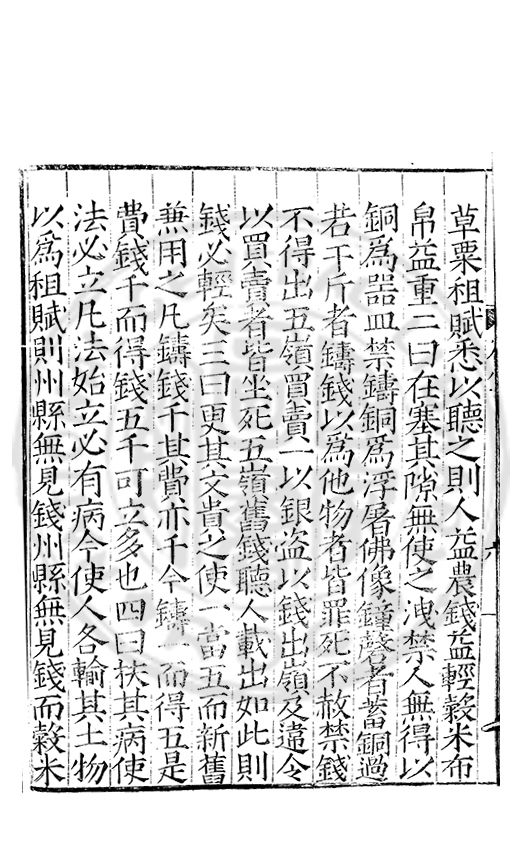 草粟租賦悉以聽之則人益農錢益輕穀米布
帛益重二曰在塞其隙無使之洩禁人無得以
銅為器皿禁鑄銅為浮屠佛像鐘磬者蓄銅過
若干斤者鑄錢以為他物者皆罪死不赦禁錢
不得出五嶺買賣一以銀盗以錢出嶺及違令
以買賣者皆坐死五嶺舊錢聽人載出如此則
錢必輕矣三曰更其文貴之使一當五而新舊
兼用之凡鑄錢千其費亦千今鑄一而得五是
費錢千而得錢五千可立多也四曰扶其病使
法必立凡法始立必有病今使人各輸其土物
以為租賦則州縣無見錢州縣無見錢而穀米